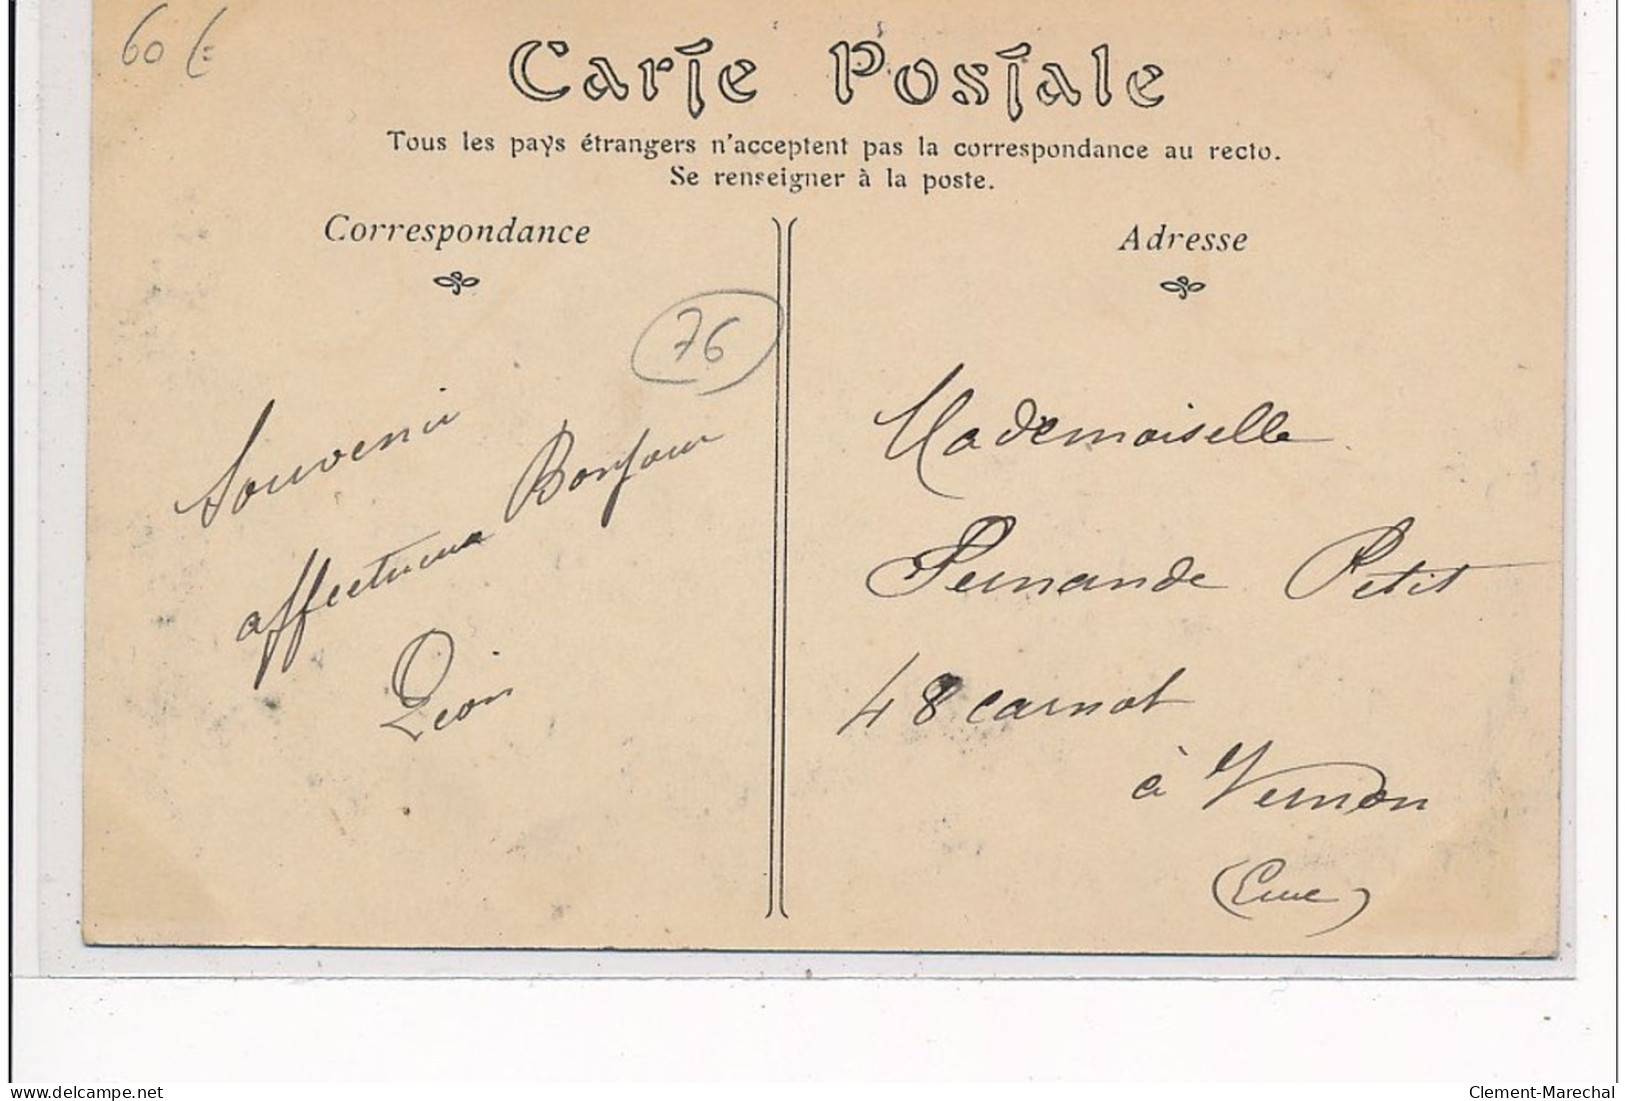 60 €
Carte Postale
Tous les pays étrangers n'acceptent pas la correspondance au recto.
Se renseigner à la poste.
Correspondance
Adresse
76
Souvenir
affectueux Bonjour
Léon
Mademoiselle
Fernande Petit
48 carnot
à Vernon
(Eure)
delcampe.net
Clement-Marechal